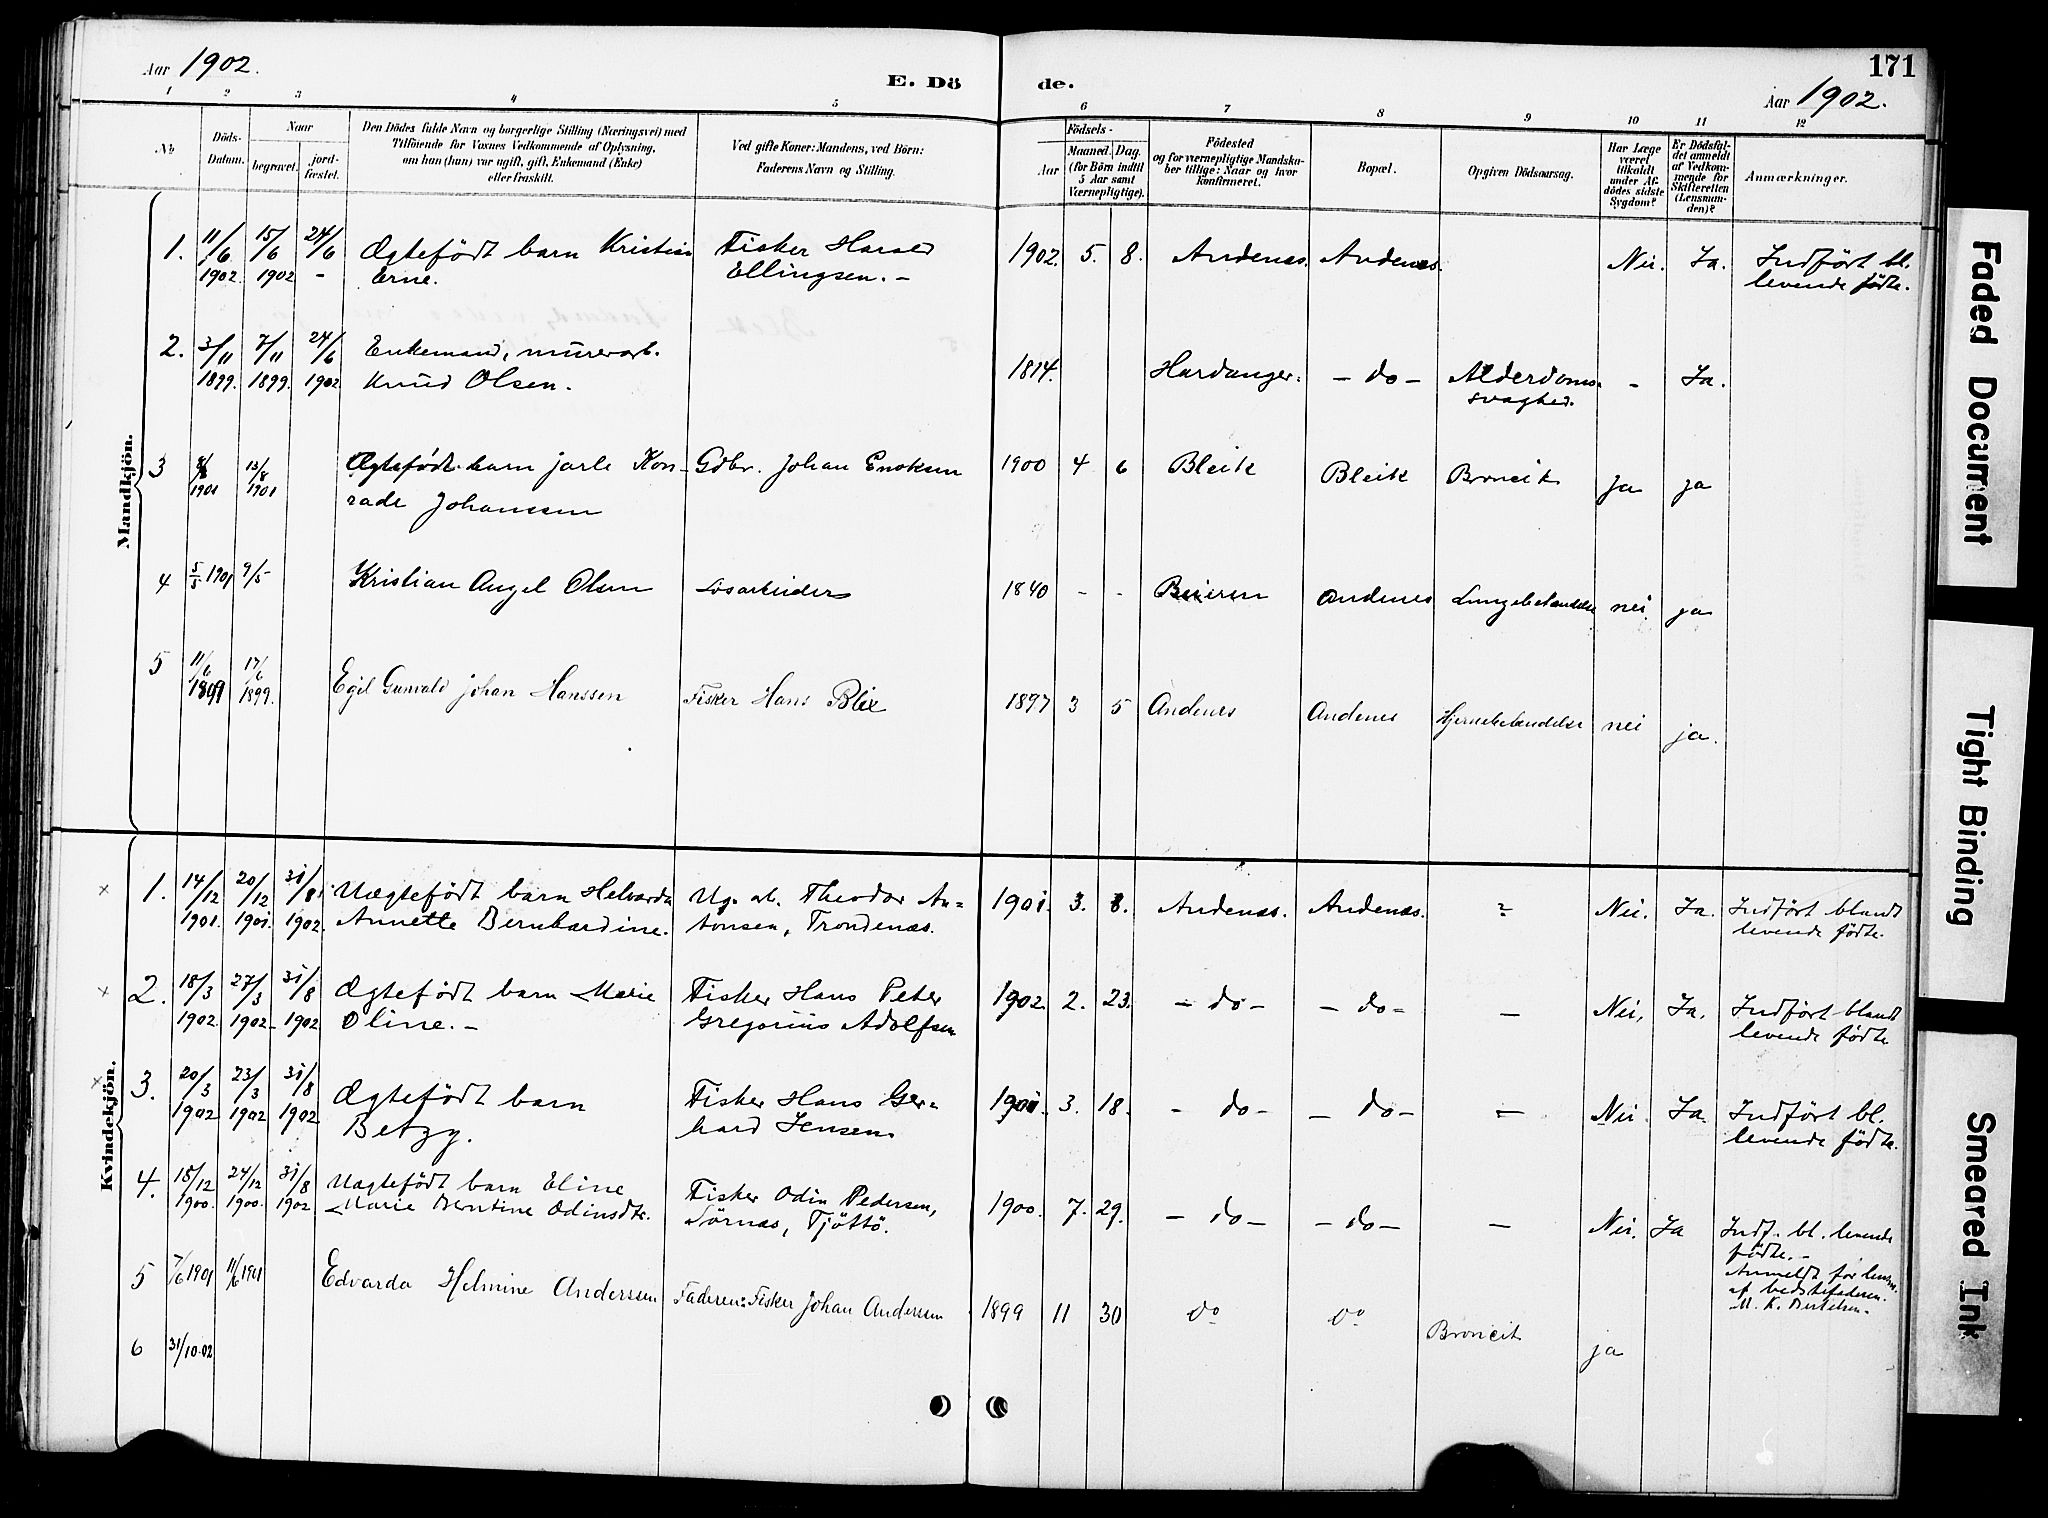 Aar 1902.
E. Dö
de.
171
Aar 1902.
1 2 3 4 5 6 7 8 9 10 11 12
No
Döds-
Datum.
Naar
begravet.
jord-
fæstet.
Den Dödes fulde Navn og borgerlige Stilling (Næringsvei) med
Tilföiende for Voxnes Vedkommende af Oplysning,
om han (hun) var ugift, gift, Enkemand (Enke)
eller fraskilt.
Ved gifte Koner: Mandens, ved Börn:
Faderens Navn og Stilling.
Födsels-
Aar
Maaned. Dag.
(for Börn indtil
5 Aar samt
Værnepligtige).
Födested
og for værnepligtige Mandska-
ber tillige: Naar og hvor
konfirmeret.
Bopæl.
Opgiven Dödsaarsag.
Har Læge
været
tilkaldt
under Af-
dödes sidste
Sygdom?
Er Dödsfal-
det anmeldt
af Vedkom-
mende for
Skifteretten
(Lensman-
den)?
Anmærkninger.
Mandkjön.
1. 11/6 15/6 24/6 Ægtefödt barn Kristian Fisker Harald 1902. 5. 8. Andenæs. Andenæs. Nei. Ja. Indfört bl.
1902. 1902 - Erne. Ellingsen. - levende födte.
2. 3/11 7/11 24/6 Enkemand, murerarb.
1899. 1899. 1902. Knud Olsen. 1814. Hardanger. - do - Alderdoms- - Ja.
svaghed.
3 8/8 13/8 Ægtefödt barn Jarle Kon- Gdbr. Johan Enoksen 1900 4 6 Bleik Bleik Broncit ja ja
1901 1901 rade Johanssen
4 5/5 1901 9/5 Kristian Angel Olsen Løsarbeider 1840 - - Beieren Andenes Lungebetændelse nei. ja
5 11/6 17/6 Egil Gunvald Johan Hanssen Fisker Hans Blix 1897 3 5 Andenes Andenes Hjernebetændelse nei ja.
1899 1899.
Kvindekjön.
x 1. 14/12 20/12 31/8 Uægtefödt barn Helvarda Ug. arb. Theodor An- 1901. 3. 8. Andenæs. Andenæs. Nei. Ja. Indfört blandt
1901. 1901. 1902. Annette Bernhardine. tonsen, Trondenæs. levende födte.
x 2. 18/3 27/3 31/8 Ægtefödt barn Marie Fisker Hans Peter 1902. 2. 23. - do - - do - - Nei. Ja. Indfört blandt
1902. 1902. 1902 Oline. - Gregorius Adolfsen levende födte
x 3. 20/3 23/3 31/8 Ægtefödt barn Fisker Hans Ger- 1901. 3. 18. - do - - do - - Nei. Ja. Indfört bl.
1902 1902 1902 Betzy. hard Jensen levende födte.
4. 18/12 24/12 31/8 Uægtefödt barn Eline Fisker Odin Pedersen, 1900. 7. 29. - do - - do - - Nei. Ja Indf. bl. levende
1900. 1900. 1902 Marie Berntine Odinsdtr. Sörnæs, Tjöttö. födte. -
Anmeldt for lensm.
af bedstefaderen
M. K. Bertelsen.
5 7/6 1901 11/6 1901 Edvarda Helmine Anderssen Faderen: Fisker Johan Anderssen 1899 11 30 do do Broncit ja
6 31/10.02
Faded Document
Tight Binding
Smeared Ink